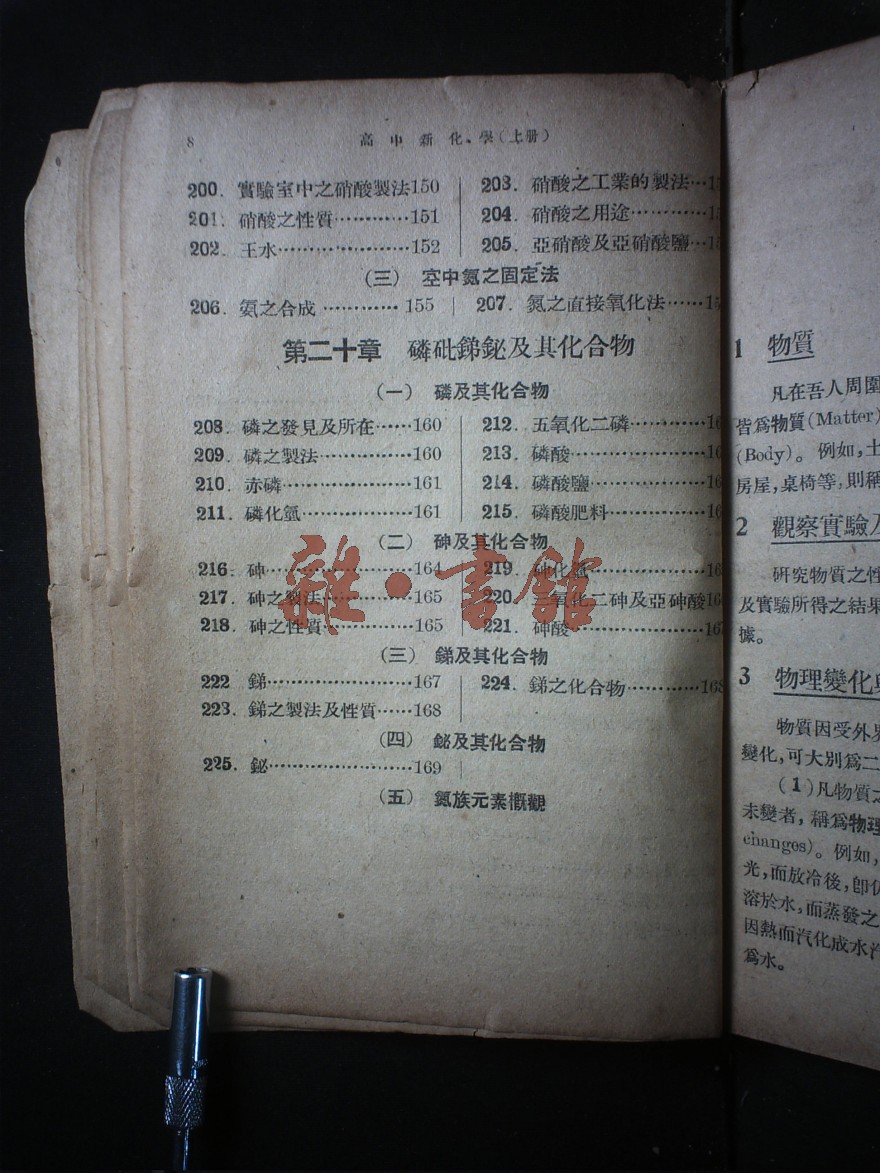 8
高中新化學(上册)
200. 實驗室中之硝酸製法150
201. 硝酸之性質…………151
202. 王水………………152
203. 硝酸之工業的製法…
204. 硝酸之用途…………
205. 亞硝酸及亞硝酸鹽…
(三) 空中氮之固定法
206. 氨之合成 ………… 155
207. 氮之直接氧化法……
第二十章 磷砒銻鉍及其化合物
(一) 磷及其化合物
208. 磷之發見及所在……160
209. 磷之製法……………160
210. 赤磷…………………161
211. 磷化氫………………161
212. 五氧化二磷…………
213. 磷酸…………………
214. 磷酸鹽………………
215. 磷酸肥料……………
(二) 砷及其化合物
216. 砷……………………164
217. 砷之製法……………165
218. 砷之性質……………165
219. 砷化氫………………
220. 三氧化二砷及亞砷酸
221. 砷酸…………………
(三) 銻及其化合物
222 銻……………………167
223. 銻之製法及性質……168
224. 銻之化合物…………168
(四) 鉍及其化合物
225. 鉍……………………169
(五) 氮族元素概觀
雜·書館
1 物質
凡在吾人周圍
皆爲物質(Matter)
(Body)。例如,土
房屋,桌椅等,則稱
2 觀察實驗及
硏究物質之性
及實驗所得之結果
據。
3 物理變化與
物質因受外界
變化,可大別爲二
(1)凡物質之
未變者,稱爲物理
changes)。例如,
光,而放冷後,卽仍
溶於水,而蒸發之
因熱而汽化成水汽
爲水。